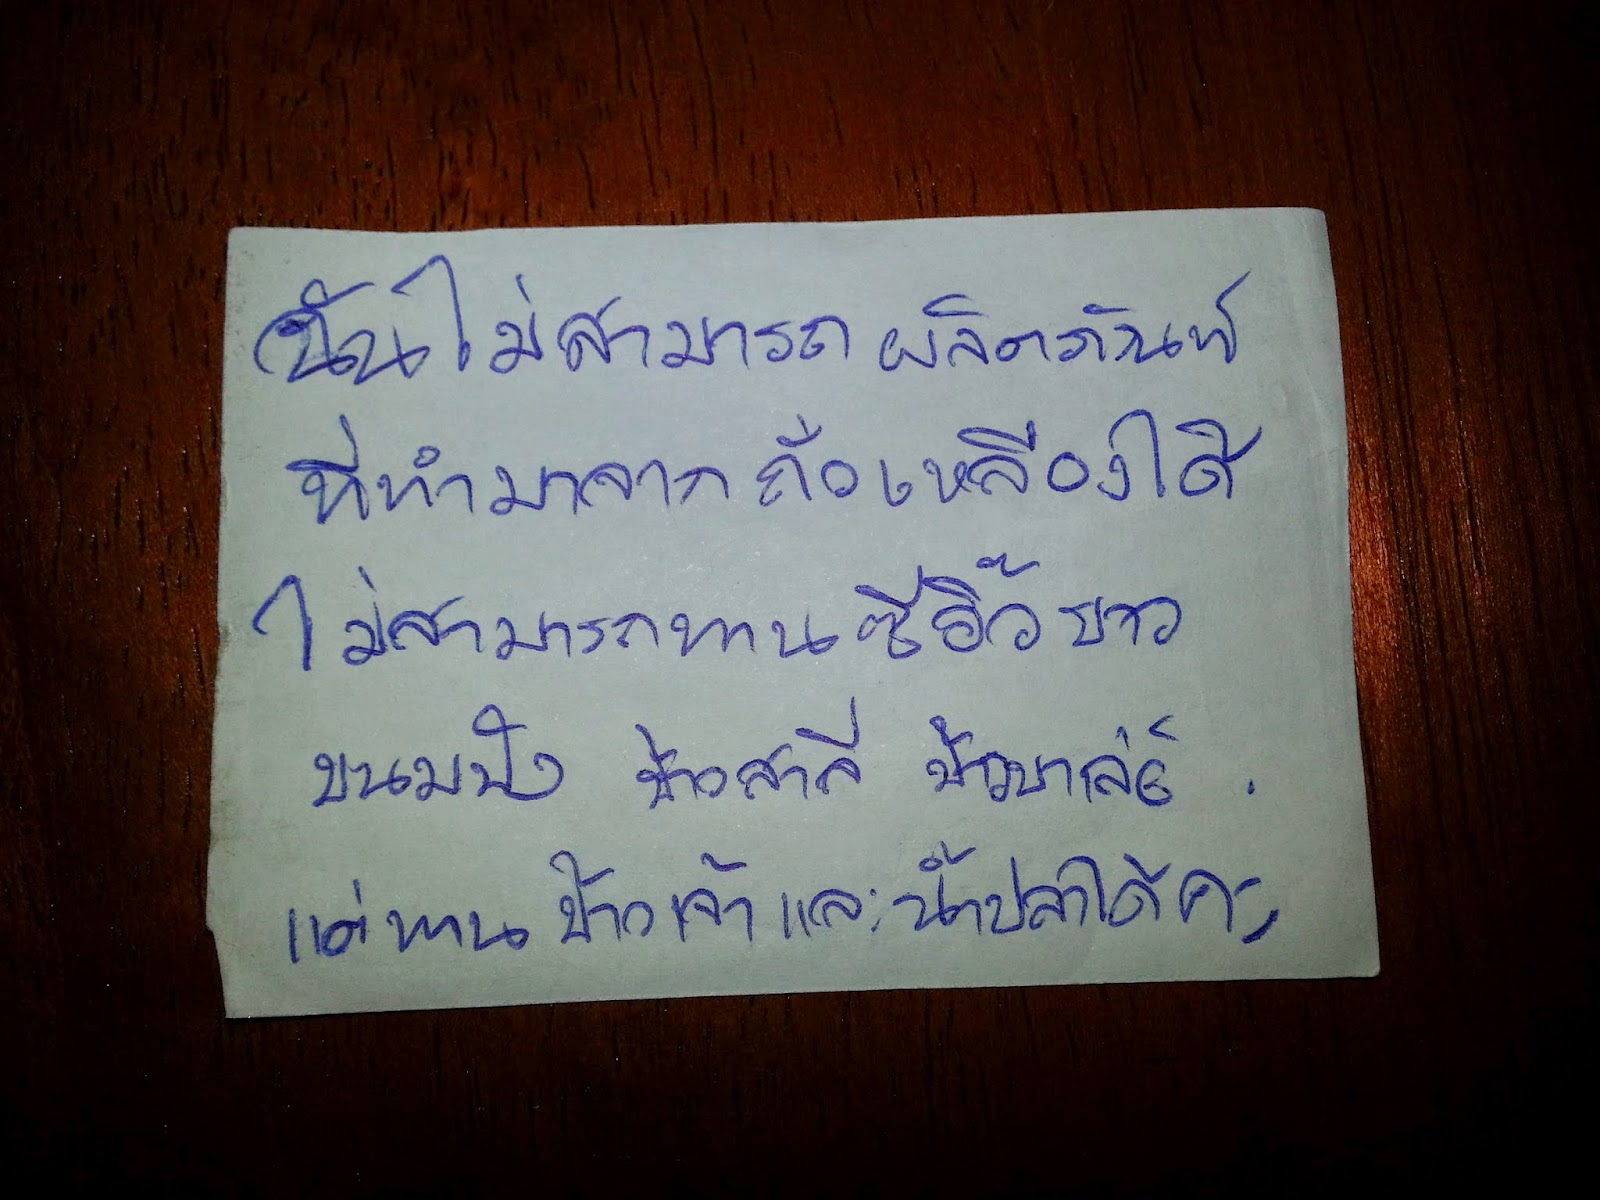 ฉันไม่สามารถ ผลิตภัณฑ์
ที่ทำมาจาก ถั่วเหลืองได้
ไม่สามารถทาน ซีอิ๊วขาว
ขนมปัง ข้าวสาลี ข้าวบาเล่ย์ .
แต่ทาน ข้าวเจ้า และน้ำปลาได้ค่ะ